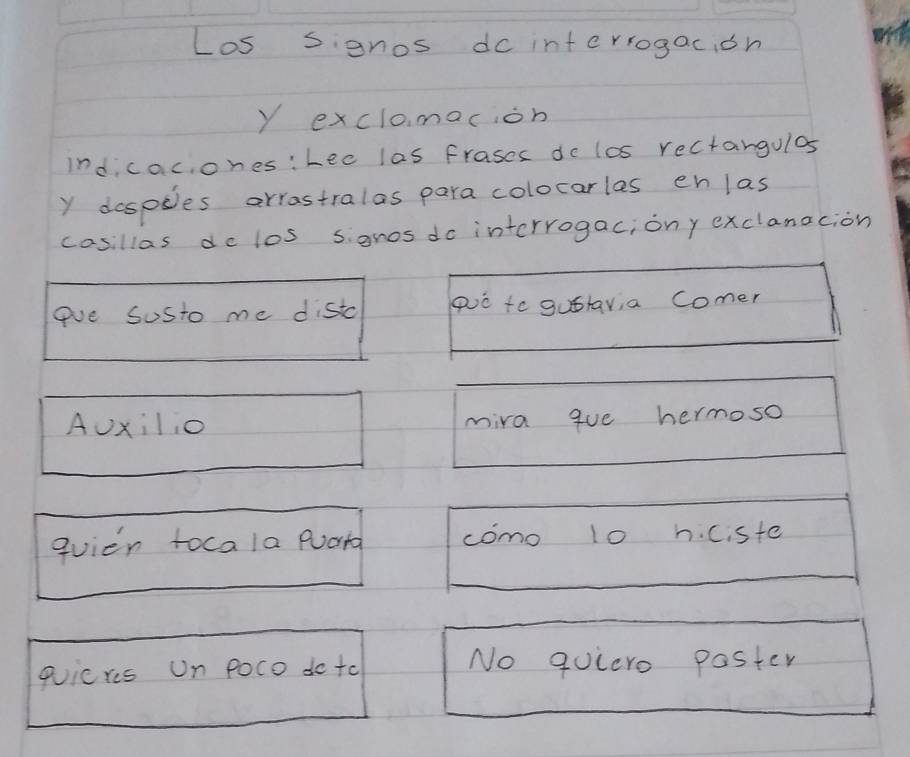 Los signos de interrogación
y exclamación
indicaciones: Lee las frases de los rectangulos
y despúes arrastralas para colocarlas en las
casillas de los signos de interrogación y exclanación
que susto me diste
qué te gustaria comer
Auxilio
mira que hermoso
quién toca la puerta
cómo lo hiciste
quieres un poco de te
No quiero paster